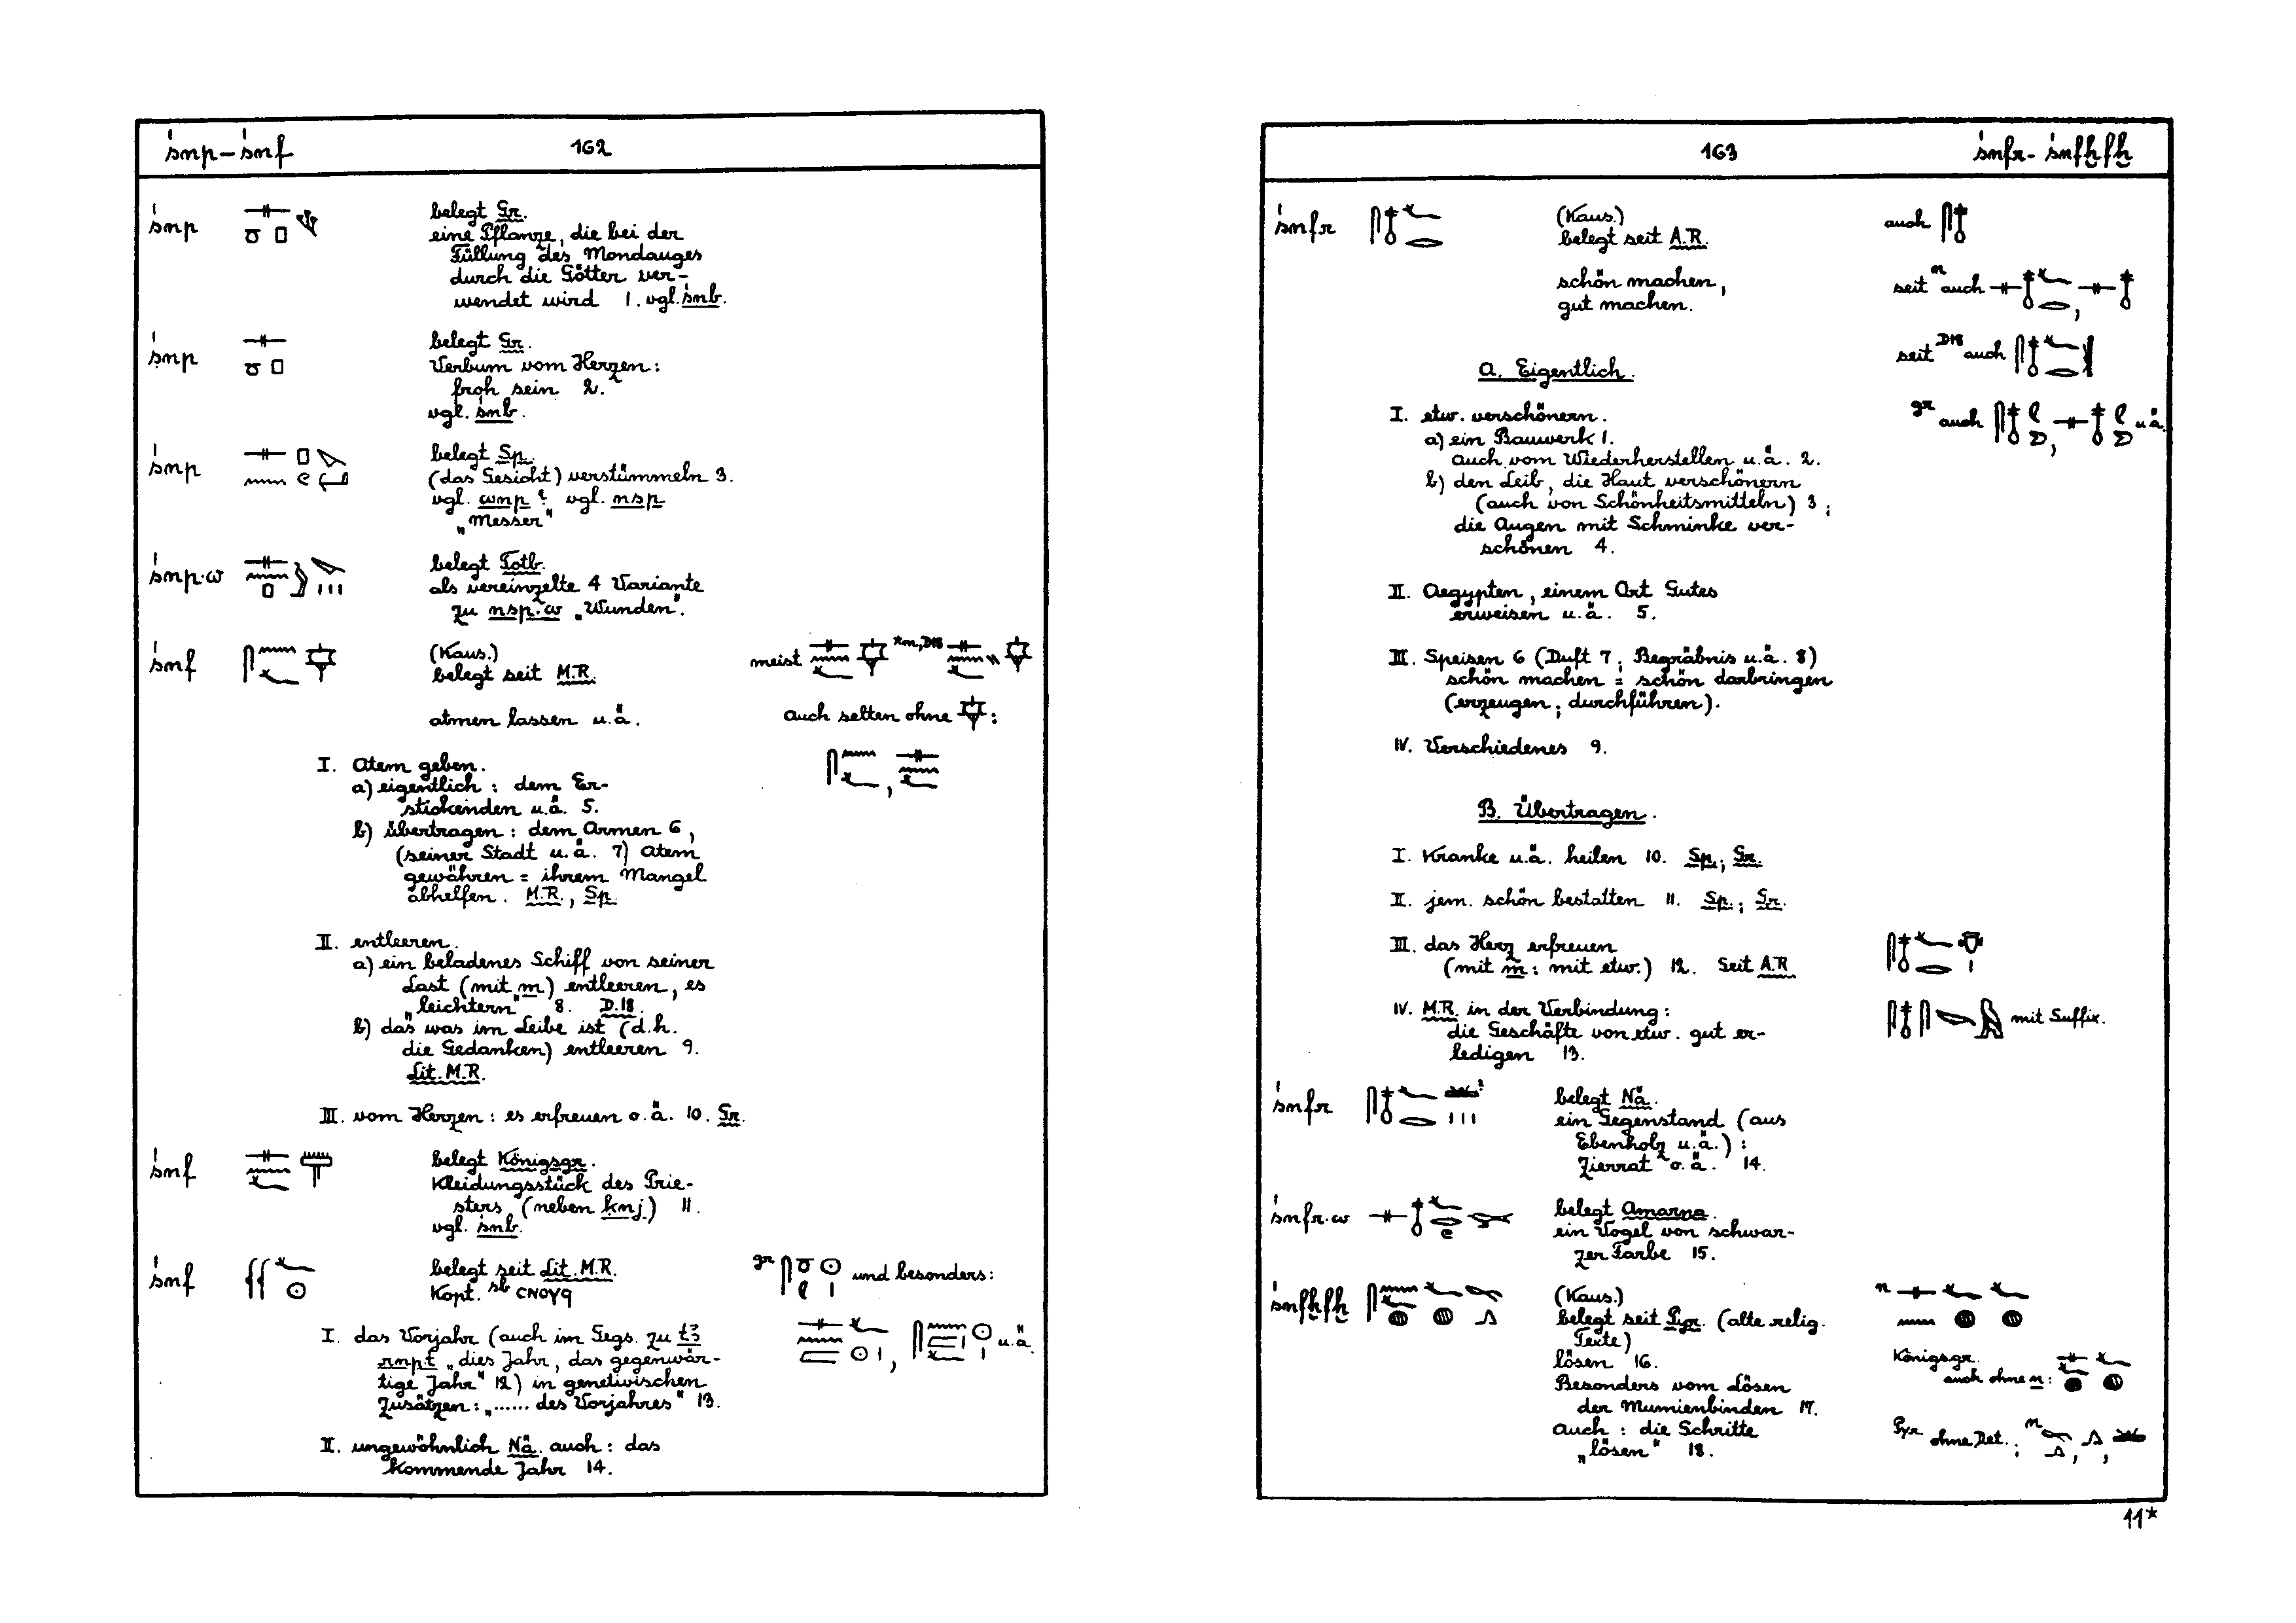 śnp–śnf 162
śnp belegt Gr.
eine Pflanze, die bei der
Füllung des Mondauges
durch die Götter ver-
wendet wird 1. vgl. śnb.
śnp belegt Gr.
Verbum vom Herzen:
froh sein 2.
vgl. śnb.
śnp belegt Sp.
(das Gesicht) verstümmeln 3.
vgl. wnp? vgl. nsp
„Messer"
śnp.w belegt Totb.
als vereinzelte 4 Variante
zu nsp.w „Wunden".
śnf (Kaus.) meist *m, D18
belegt seit M.R.
atmen lassen u.ä. auch selten ohne :
I. Atem geben.
a) eigentlich: dem Er-
stickenden u.ä. 5.
b) übertragen: dem Armen 6,
(seiner Stadt u.ä. 7) Atem
gewähren = ihrem Mangel
abhelfen. M.R., Sp.
II. entleeren.
a) ein beladenes Schiff von seiner
Last (mit m) entleeren, es
„leichtern" 8. D.18.
b) das was im Leibe ist (d.h.
die Gedanken) entleeren 9.
Lit. M.R.
III. vom Herzen: es erfreuen o.ä. 10. Gr.
śnf belegt Königsgr.
Kleidungsstück des Prie-
sters (neben knj) 11.
vgl. śnb.
śnf belegt seit Lit. M.R. gr und besonders:
Kopt. sb ⲥⲛⲟⲩϥ
I. das Vorjahr (auch im Gegs. zu tꜣ u.ä.
rnpt „dies Jahr, das gegenwär-
tige Jahr" 12) in genetivischen
Zusätzen: „...... des Vorjahres" 13.
II. ungewöhnlich Nä. auch: das
kommende Jahr 14.
163 śnfr–śnfḫfḫ
śnfr (Kaus.) auch
belegt seit A.R.
schön machen, seit n auch
gut machen.
seit D18 auch
A. Eigentlich.
I. etw. verschönern. gr auch u.ä.
a) ein Bauwerk 1.
auch vom Wiederherstellen u.ä. 2.
b) den Leib, die Haut verschönern
(auch von Schönheitsmitteln) 3;
die Augen mit Schminke ver-
schönen 4.
II. Aegypten, einem Ort Gutes
erweisen u.ä. 5.
III. Speisen 6 (Duft 7; Begräbnis u.ä. 8)
schön machen = schön darbringen
(erzeugen; durchführen).
IV. Verschiedenes 9.
B. Übertragen.
I. Kranke u.ä. heilen 10. Sp.; Gr.
II. jem. schön bestatten 11. Sp.; Gr.
III. das Herz erfreuen
(mit m: mit etw.) 12. Seit A.R
IV. M.R. in der Verbindung: mit Suffix.
die Geschäfte von etw. gut er-
ledigen 13.
śnfr belegt Nä.
ein Gegenstand (aus
Ebenholz u.ä.):
Zierrat o.ä. 14.
śnfr.w belegt Amarna.
ein Vogel von schwar-
zer Farbe 15.
śnfḫfḫ (Kaus.) n
belegt seit Pyr. (alte relig.
Texte)
lösen 16. Königsgr.
Besonders vom Lösen auch ohne n:
der Mumienbinden 17.
auch: die Schritte Pyr ohne Det.; n
„lösen" 18.
11*